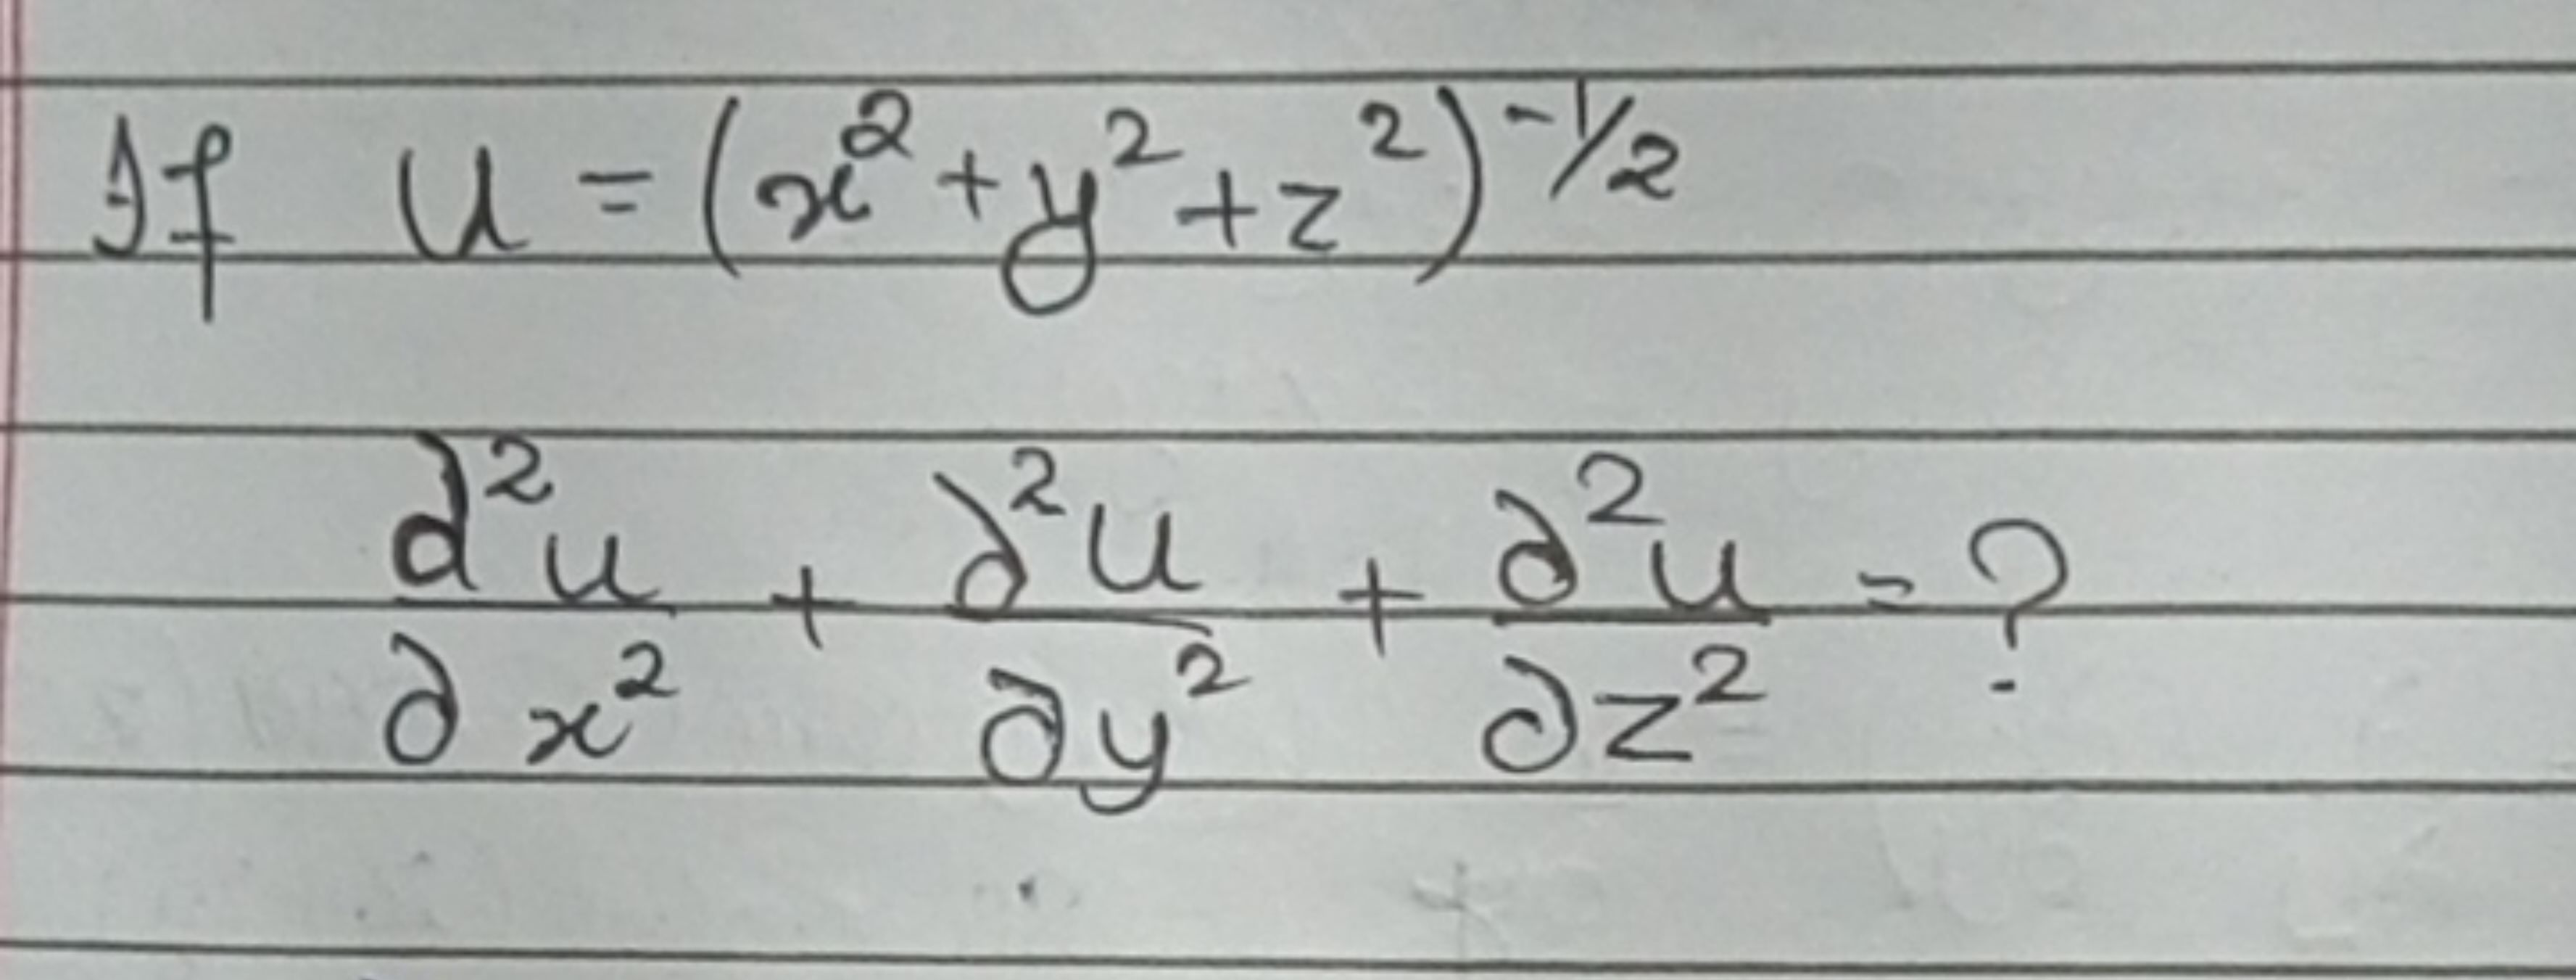 If u = (x² + y² + z²)^-1/2
∂²u/∂x² + ∂²u/∂y² + ∂²u/∂z² = ?